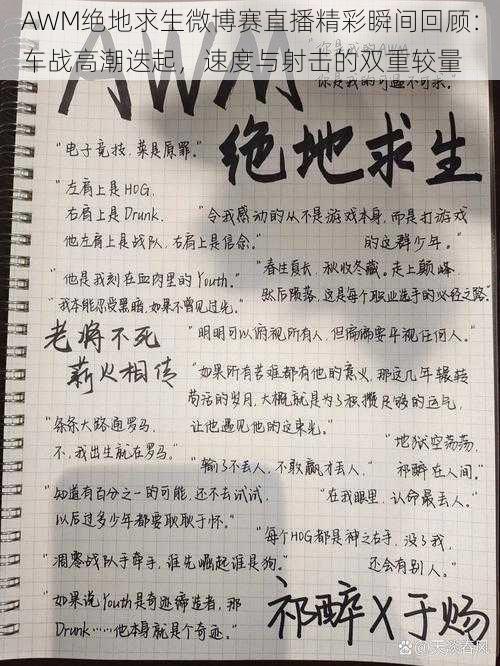 AWM绝地求生微博赛直播精彩瞬间回顾：
车战高潮迭起，速度与射击的双重较量
AWM
绝地求生
"你是我的AWM
你是我的可遇不可求。"
"电子竞技，菜是原罪。"
"左肩上是HOG，
右肩上是Drunk，
他左肩上是战队，右肩上是信念。"
"令我感动的从不是游戏本身，而是打游戏
的这群少年。"
"他是我刻在血肉里的Youth。"
"春生夏长，秋收冬藏。走上巅峰，
然后陨落，这是每个职业选手的必经之路。"
"我本能忍受黑暗，如果不曾见过光。"
老将不死
薪火相传
"明明可以俯视所有人，但偏偏要平视任何人。"
"如果所有苦难都有他的意义，那这几年辗转
苟活的岁月，大概就是为了积攒足够的运气，
让他遇见他的这束光。"
"条条大路通罗马，
不，我出生就在罗马。"
"地狱空荡荡，
祁醉在人间。"
"输了不丢人，不敢赢才丢人。"
"知道有百分之一的可能，还不去试试，
以后过多少年都要耿耿于怀。"
"在我眼里，认命最丢人。"
"每个HOG都是神之右手，没了我，
还会有别人。"
"凋零战队手牵手，谁先崛起谁是狗。"
"如果说Youth是奇迹缔造者，那
Drunk……他本身就是个奇迹。"
祁醉X于炀
@天淡春风